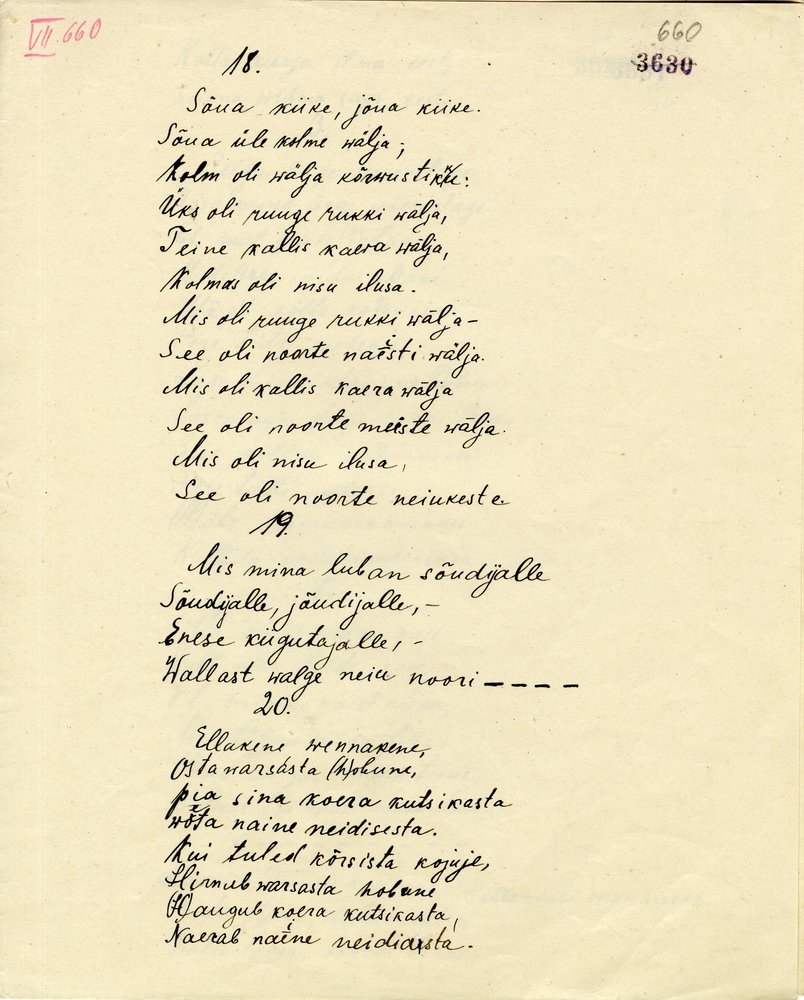 VII.660
660
3630
18.
Sõua kiike, jõua kiike.
Sõua üle kolme wälja;
Kolm oli wälja kõrwustikku:
Üks oli ruuge rukki wälja,
Teine kallis kaera wälja,
Kolmas oli nisu ilusa.
Mis oli ruuge rukki wälja –
See oli noorte naisti wälja.
Mis oli kallis kaera wälja
See oli noorte meiste wälja.
Mis oli nisu ilusa,
See oli noorte neiukeste
19.
Mis mina luban sõudijalle
Sõudijalle, jõudijalle, –
Enese kiigutajalle, –
Wallast walge neiu noori – – – –
20.
Ellakene wennakene,
Osta warsasta (h)obune,
pia sina koera kutsikasta
wõta naine neidisesta.
Kui tuled kõrsista kojuje,
Hirnub warsasta hobune
(H)augub koera kutsikasta,
Naerab naine neidiasta.